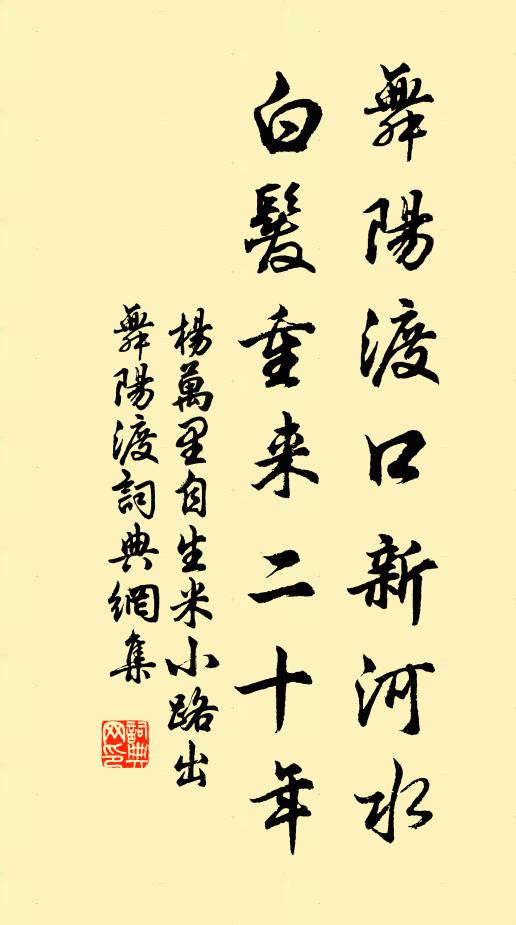 舞陽渡口新河水
白髮重来二十年
楊萬里自生米小路出
舞陽渡詞典網集
詞典網印